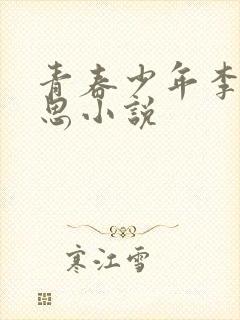 青春少年李
思小说
寒江雪